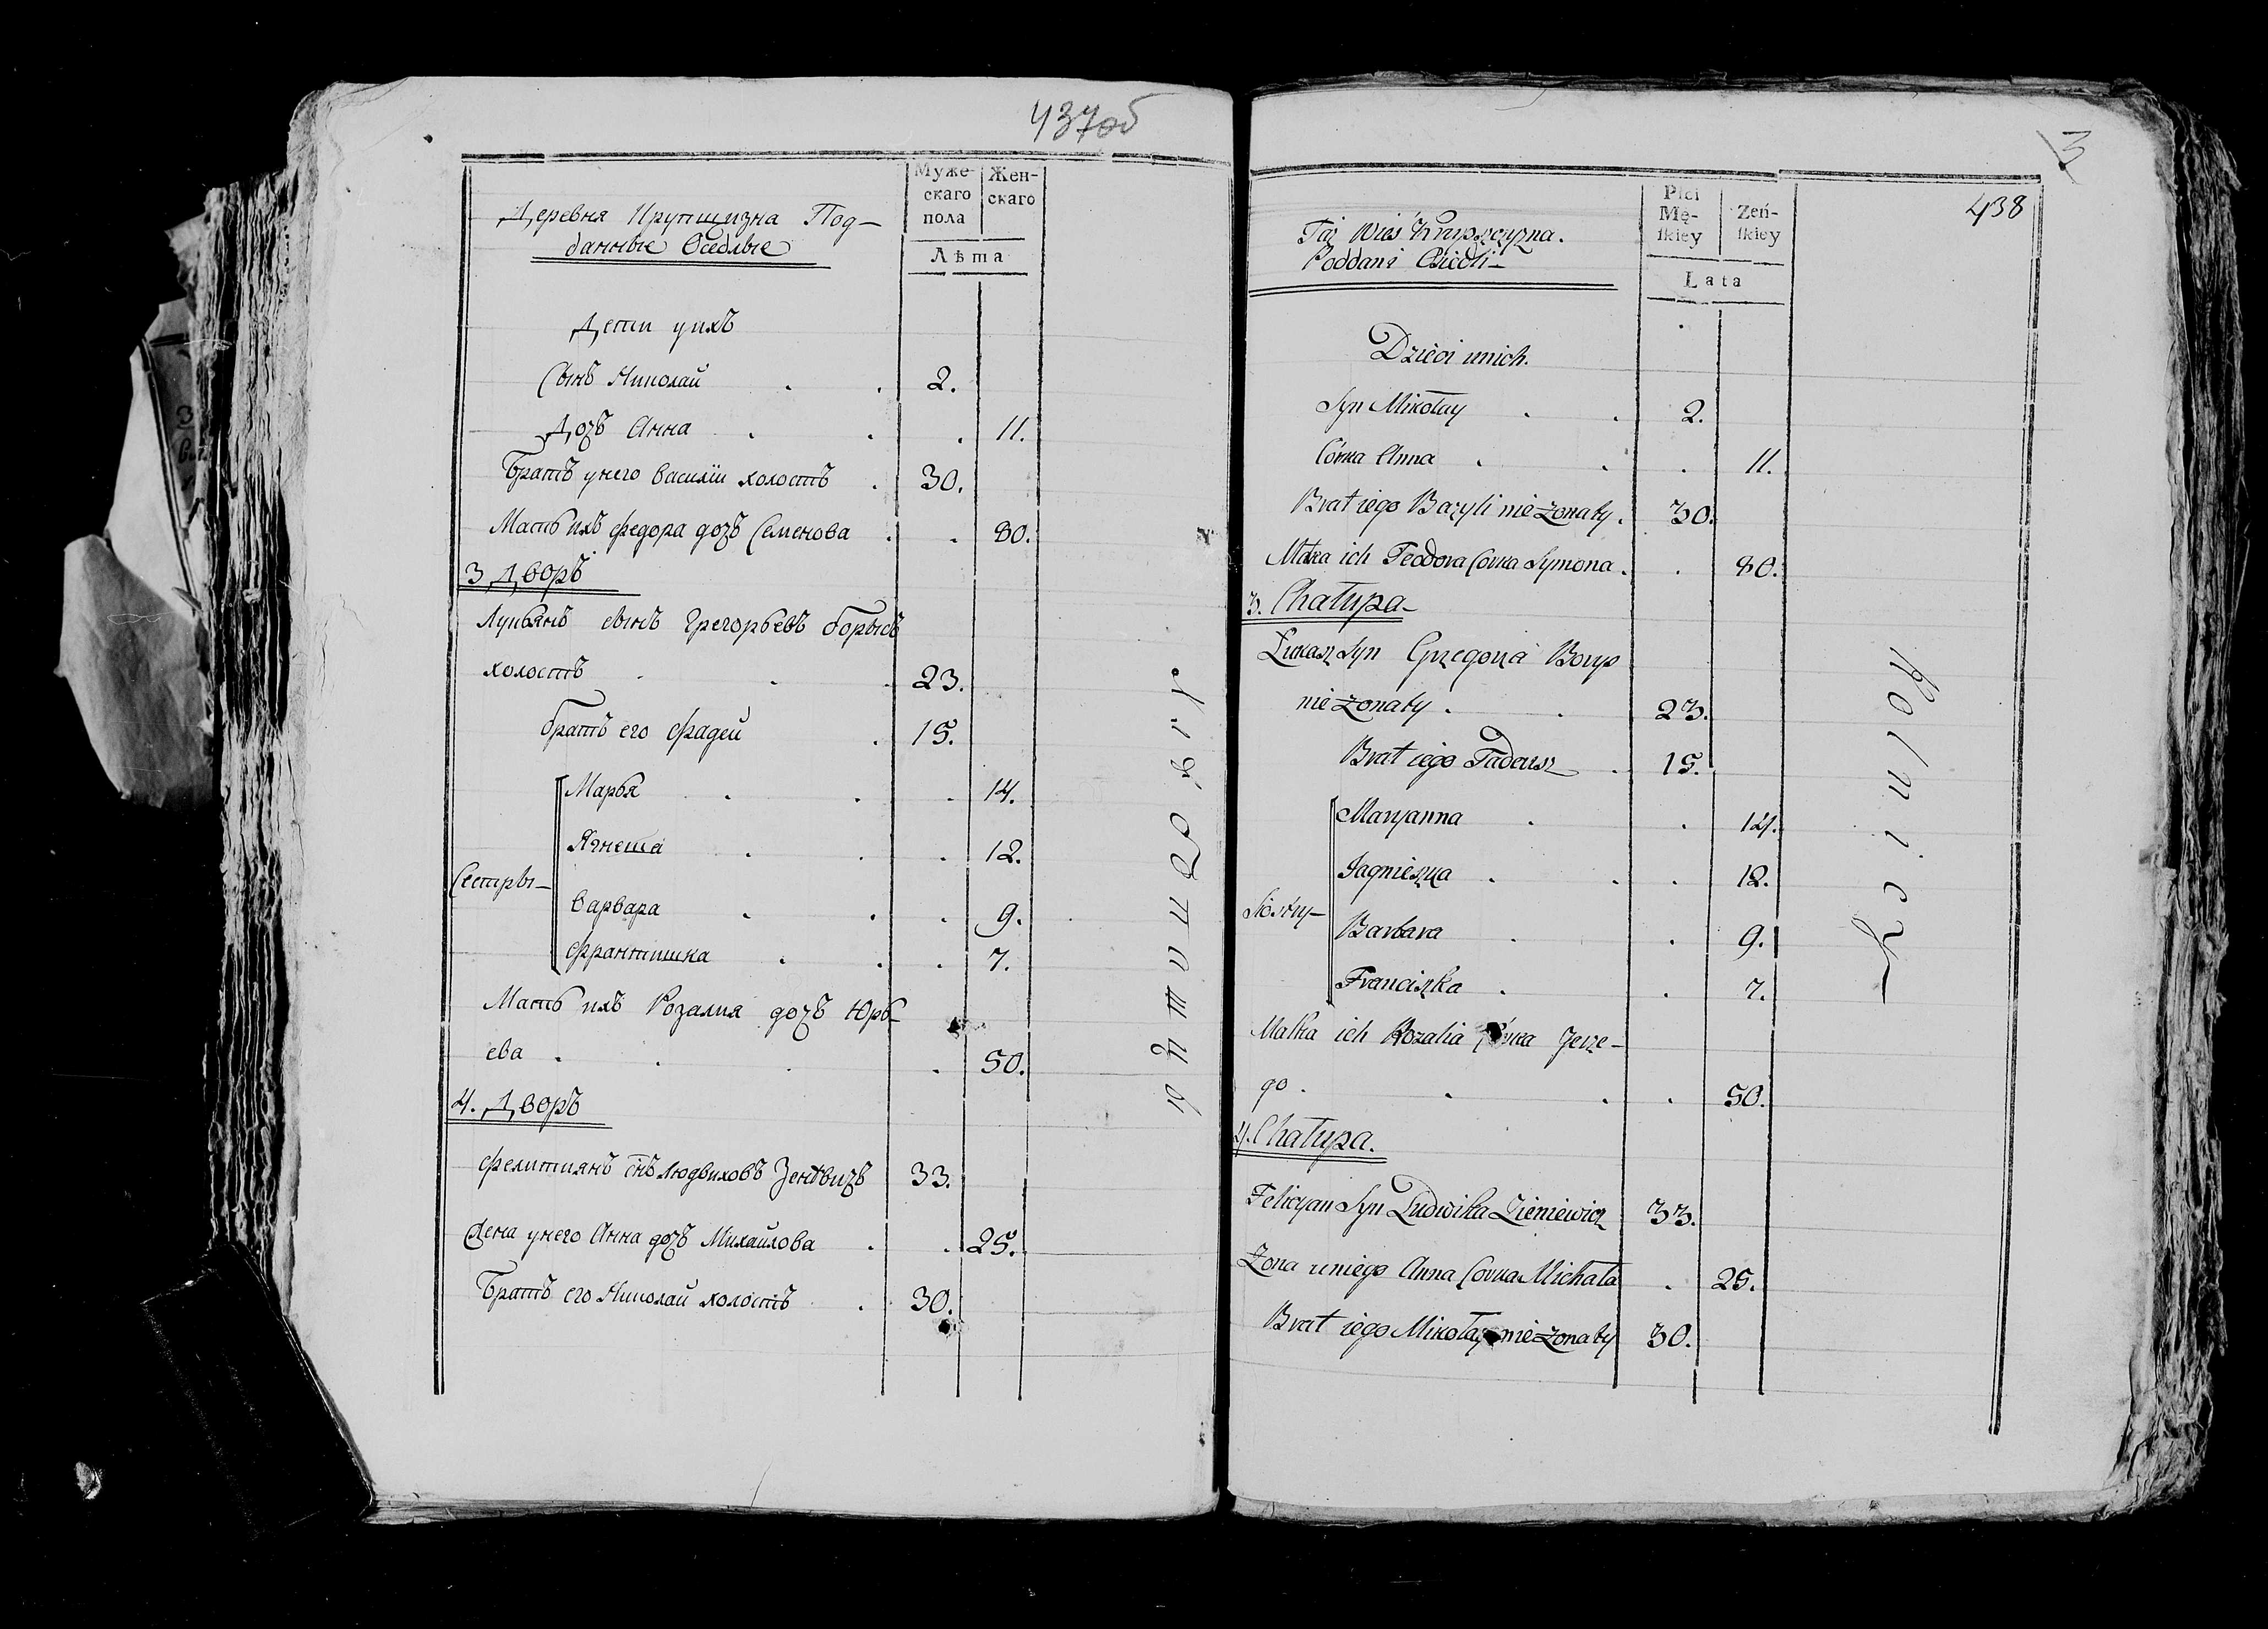 437об
Муже-
скаго
пола
Жен-
скаго
Лѣта
Деревня Крупщизна Под-
данные Оседлые
Дети у ихъ
Сынъ Николай . . 2.
Дочь Анна . . . 11.
Братъ у него Василiи холостъ . 30.
Мать ихъ Федора дочь Семенова . . 80.
3 Дворъ
Лукьянъ сынъ Грегорьевъ Борысъ
холостъ . . . 23.
братъ его Фадей . 15.
Сестры-
Марья . . . 14.
Ягнета . . . 12.
Варвара . . . 9.
Франтишка . . . 7.
Мать ихъ Розалия дочь Юрь-
ева . . . . 50.
4. Дворъ
Фелитиянъ снъ Людвиховъ Зенквичъ 33.
Жена у него Анна дочь Михайлова . . 25.
Братъ его Николай холостъ . 30.
3
438
Płci
Mę-
ſkiey
Zeń-
ſkiey
Lata
Taż Wieś Krupszczyzna.
Poddani Osiedli-
Dzieci unich.
Syn Mikołay . . 2.
Córka Anna . . . 11.
Brat iego Bazyli nie żonaty . 30.
Matka ich Teodora Corka Symona . . 80.
3. Chałupa-
Łukasz Syn Grzegorza Borys
nie żonaty . . 23.
Brat iego Tadeusz . 15.
Siostry-
Maryanna . . 14.
Jagnieszka . . . 12.
Barbara . . 9.
Franciszka . . 7.
Matka ich Rozalia Córka Jerze-
go . . . . 50.
4. Chałupa.
Felicyan Syn Ludwika Zieniewicz 33.
Żona uniego Anna Corka Michała . 25.
Brat iego Mikołay nie żonaty 30.
Rolnicy